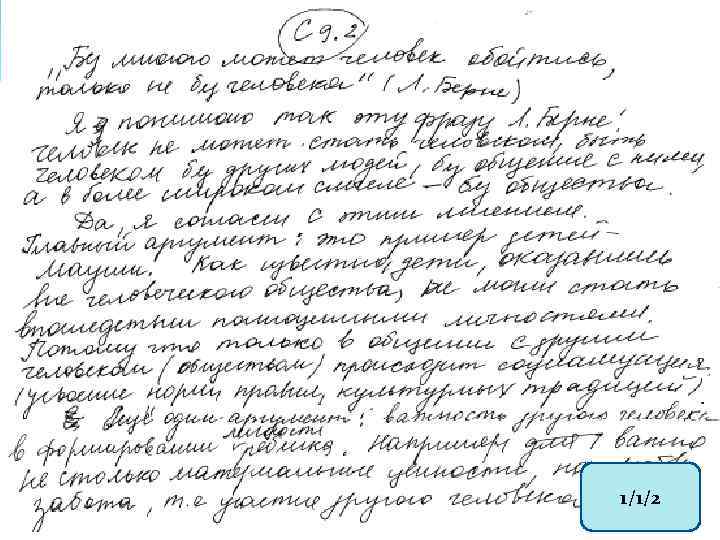 С 9.2
„Бу многого может человек обойтись,
только не бу человека" (Л. Берне)
Я понимаю так эту фразу Л. Берне:
человек не может стать человеком, быть
человеком бу других людей, бу общение с ними,
а в более широком смысле – бу общества.
Да, я согласен с этим мнением.
Главный аргумент: это пример детей –
маугли. Как известно, дети, оказавшись
вне человеческого общества, не могли стать
впоследствии полноценными личностями.
Потому что только в общении с другим
человеком (обществом) происходит социализация
(усвоение норм, правил, культурных традиций)
Ещё один аргумент: важность другого человека
в формировании личности ребёнка. Например, для важно
не столько материальные ценности,
забота, т.е участие другого человека
1/1/2